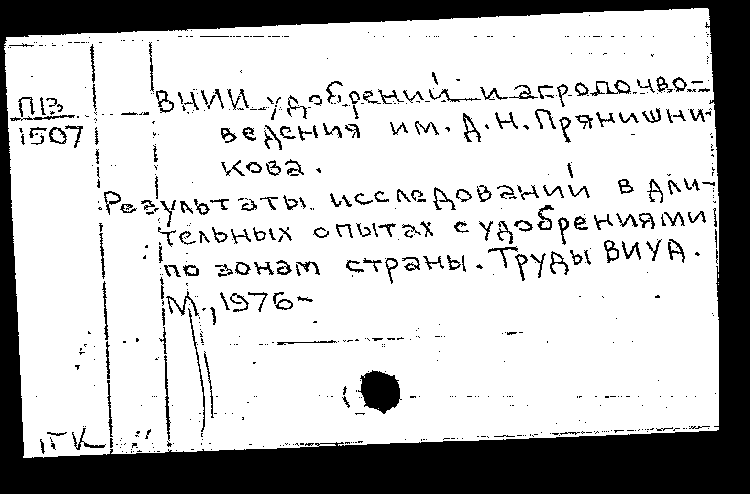 П13
1507
ВНИИ удобрений и агропочво-
ведения им. Д.Н.Прянишни-
кова.
Результаты исследований в дли-
тельных опытах с удобрениями
по зонам страны. Труды ВИУА.
М., 1976-
ГК